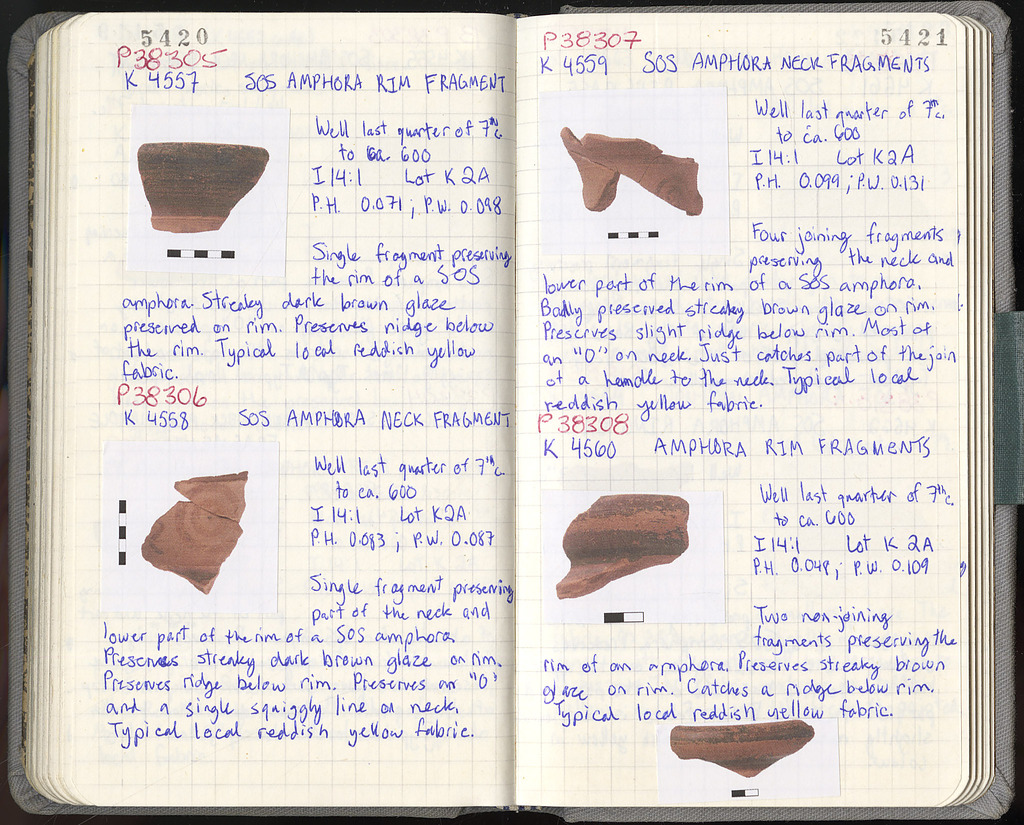 5420
P38305
K 4557 SOS AMPHORA RIM FRAGMENT
Well last quarter of 7th c.
to ca. 600
I 14:1 Lot K 2A
P.H. 0.071; P.W. 0.098
Single fragment preserving
the rim of a SOS
amphora. Streaky dark brown glaze
preserved on rim. Preserves ridge below
the rim. Typical local reddish yellow
fabric.
P38306
K 4558 SOS AMPHORA NECK FRAGMENT
Well last quarter of 7th c.
to ca. 600
I 14:1 Lot K2A
P.H. 0.083; P.W. 0.087
Single fragment preserving
part of the neck and
lower part of the rim of a SOS amphora.
Preserves streaky dark brown glaze on rim.
Preserves ridge below rim. Preserves an "O"
and a single squiggly line on neck.
Typical local reddish yellow fabric.
5421
P38307
K 4559 SOS AMPHORA NECK FRAGMENTS
Well last quarter of 7th c.
to ca. 600
I 14:1 Lot K2A
P.H. 0.099; P.W. 0.131
Four joining fragments
preserving the neck and
lower part of the rim of a SOS amphora.
Badly preserved streaky brown glaze on rim.
Preserves slight ridge below rim. Most of
an "O" on neck. Just catches part of the join
of a handle to the neck. Typical local
reddish yellow fabric.
P38308
K 4560 AMPHORA RIM FRAGMENTS
Well last quarter of 7th c.
to ca. 600
I 14:1 Lot K 2A
P.H. ; P.W. 0.109
Two non-joining
fragments preserving the
rim of an amphora. Preserves streaky brown
glaze on rim. Catches a ridge below rim.
Typical local reddish yellow fabric.